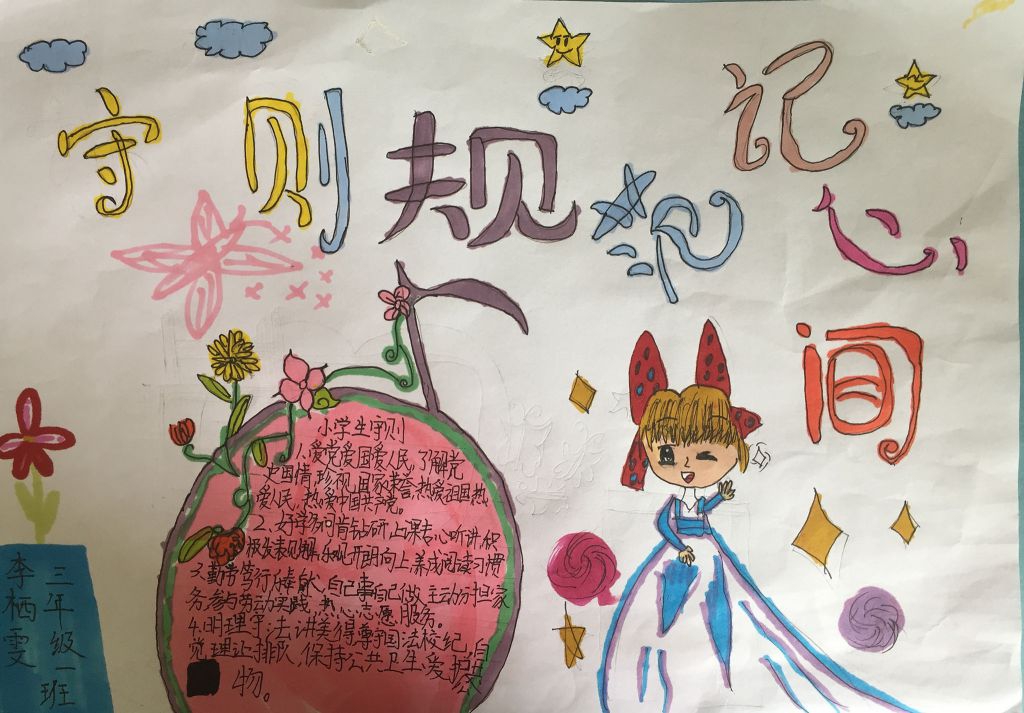 守则规范记心间
小学生守则
1.爱党爱国爱人民,了解党
史国情,珍视国家荣誉,热爱祖国,热
爱人民,热爱中国共产党。
2.好学多问肯钻研,上课专心听讲,积
极发表见解,乐观开朗向上,养成阅读习惯
3.勤劳笃行乐奉献,自己事自己做,主动分担家
务,参与劳动实践,热心志愿服务。
4.明理守法讲美德,尊守国法校纪,自
觉理让排队,保持公共卫生,爱护公
物。
三年级一班
李栖雯